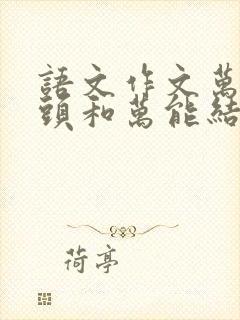 語文作文萬
頭和萬能結
荷亭